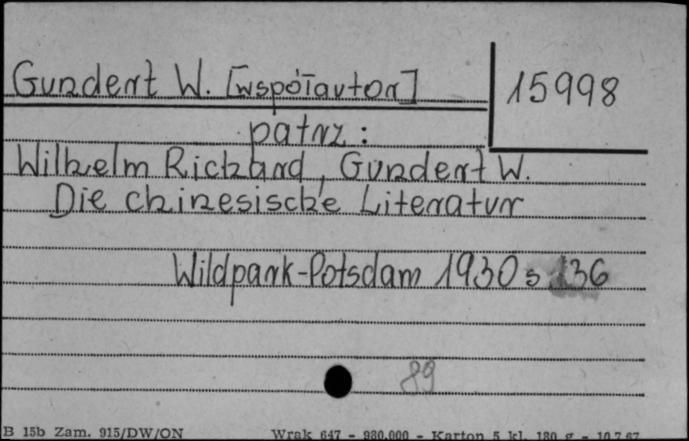 Gundert W. [współautor]
15998
patrz:
Wilhelm Richard, Gundert W.
Die chinesische Literatur
Wildpark-Potsdam 1930 s 136
89
B 15b Zam. 915/DW/ON Wrak 647 - 980.000 - Karton 5 kl. 180 g - 10.7.67